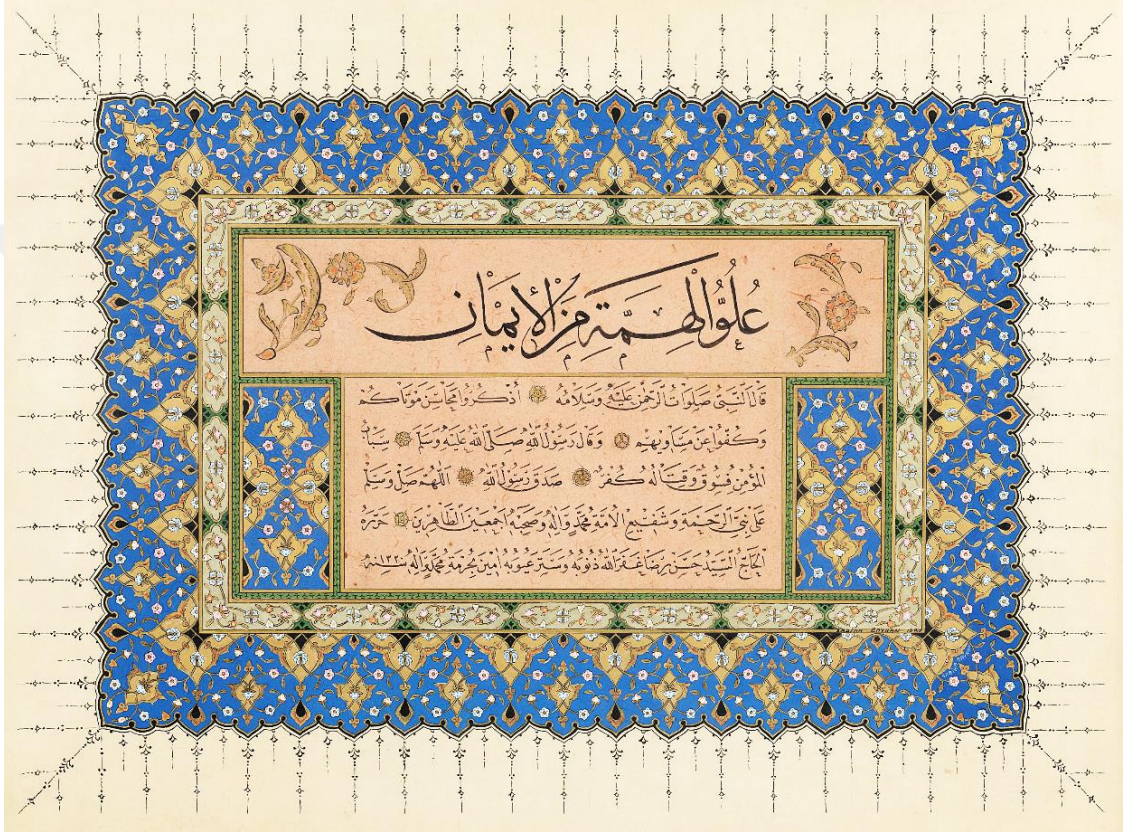 عُلُوُّ الْهِمَّةِ مِنَ الْإِيمَانِ
قَالَ النَّبِيُّ صَلَوَاتُ الرَّحْمٰنِ عَلَيْهِ وَسَلَامُهُ اُذْكُرُوا مَحَاسِنَ مَوْتَاكُمْ
وَكُفُّوا عَنْ مَسَاوِيهِمْ وَقَالَ رَسُولُ اللّٰهِ صَلَّى اللّٰهُ عَلَيْهِ وَسَلَّمَ سِبَابُ
الْمُؤْمِنِ فُسُوقٌ وَقِتَالُهُ كُفْرٌ صَدَقَ رَسُولُ اللّٰهِ اَللّٰهُمَّ صَلِّ وَسَلِّمْ
عَلَى نَبِيِّ الرَّحْمَةِ وَشَفِيعِ الْاُمَّةِ مُحَمَّدٍ وَاٰلِهِ وَصَحْبِهِ اَجْمَعِينَ الطَّاهِرِينَ حَرَّرَهُ
الْحَاجُّ السَّيِّدُ حَسَنْ رِضَا غَفَرَ اللّٰهُ ذُنُوبَهُ وَسَتَرَ عُيُوبَهُ اٰمِينَ بِحُرْمَةِ مُحَمَّدٍ وَاٰلِهِ سنة